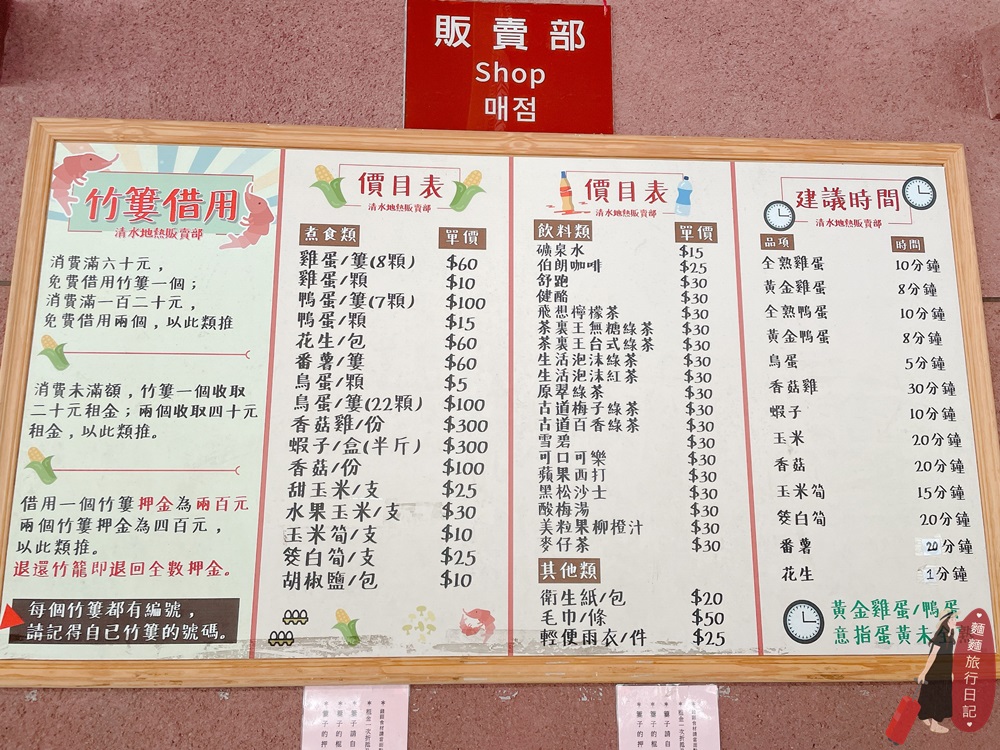 販賣部
Shop
매점
竹簍借用
清水地熱販賣部
消費滿六十元，
免費借用竹簍一個；
消費滿一百二十元，
免費借用兩個，以此類推
消費未滿額，竹簍一個收取
二十元租金；兩個收取四十元
租金，以此類推。
借用一個竹簍押金為兩百元
兩個竹簍押金為四百元，
以此類推。
退還竹籠即退回全數押金。
每個竹簍都有編號，
請記得自已竹簍的號碼。
價目表
清水地熱販賣部
煮食類 單價
雞蛋/簍(8顆) $60
雞蛋/顆 $10
鴨蛋/簍(7顆) $100
鴨蛋/顆 $15
花生/包 $60
番薯/簍 $60
鳥蛋/顆 $5
鳥蛋/簍(22顆) $100
香菇雞/份 $300
蝦子/盒(半斤) $300
香菇/份 $100
甜玉米/支 $25
水果玉米/支 $30
玉米筍/支 $10
筊白筍/支 $25
胡椒鹽/包 $10
價目表
清水地熱販賣部
飲料類 單價
礦泉水 $15
伯朗咖啡 $25
舒跑 $30
健酪 $30
飛想檸檬茶 $30
茶裏王無糖綠茶 $30
茶裏王台式綠茶 $30
生活泡沫綠茶 $30
生活泡沫紅茶 $30
原翠綠茶 $30
古道梅子綠茶 $30
古道百香綠茶 $30
雪碧 $30
可口可樂 $30
蘋果西打 $30
黑松沙士 $30
酸梅湯 $30
美粒果柳橙汁 $30
麥仔茶 $30
其他類
衛生紙/包 $20
毛巾/條 $50
輕便雨衣/件 $25
建議時間
清水地熱販賣部
品項 時間
全熟雞蛋 10分鐘
黃金雞蛋 8分鐘
全熟鴨蛋 10分鐘
黃金鴨蛋 8分鐘
鳥蛋 5分鐘
香菇雞 30分鐘
蝦子 10分鐘
玉米 20分鐘
香菇 20分鐘
玉米筍 15分鐘
筊白筍 20分鐘
番薯 20分鐘
花生 1分鐘
黃金雞蛋/鴨蛋
意指蛋黃未全
麵麵旅行日記